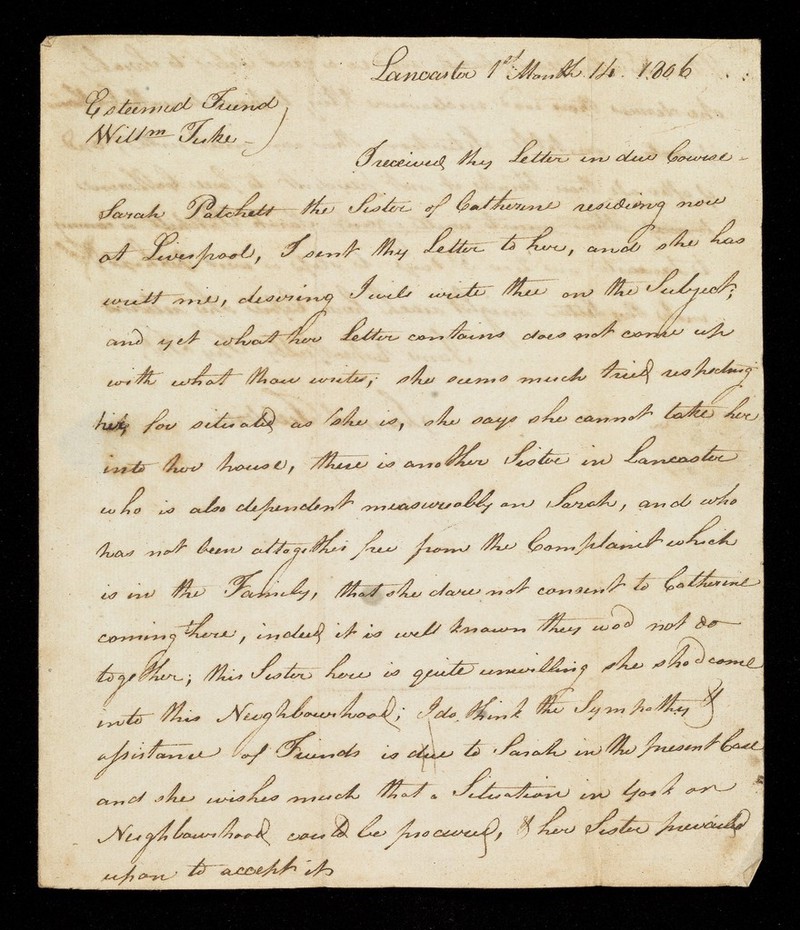 Lancaster 1st Month 14. 1806
Esteemed Friend
Willm Tuke
I received thy Letter in due Course -
Sarah Patchett the Sister of Catherine residing now
at Liverpool, I sent thy Letter to her, and she has
writt me, desiring I will write thee on the Subject;
and yet what her Letter contains does not come up
with what thou writes; she seems much tried respecting
her, for situated as she is, she says she cannot take her
into her house, there is another Sister in Lancaster
who is also dependent measureably on Sarah, and who
has not been altogether free from the Complaint which
is in the Family, that she dare not consent to Catherine
coming here, indeed it is well known they wod not do
together; this Sister here is quite unwilling she shod come
into this Neighbourhood; I do think the Sympathy &
assistance of Friends is due to Sarah in the present Case
and she wishes much that a Situation in York or
Neighbourhood could be procured, & her Sister prevailed
upon to accept it